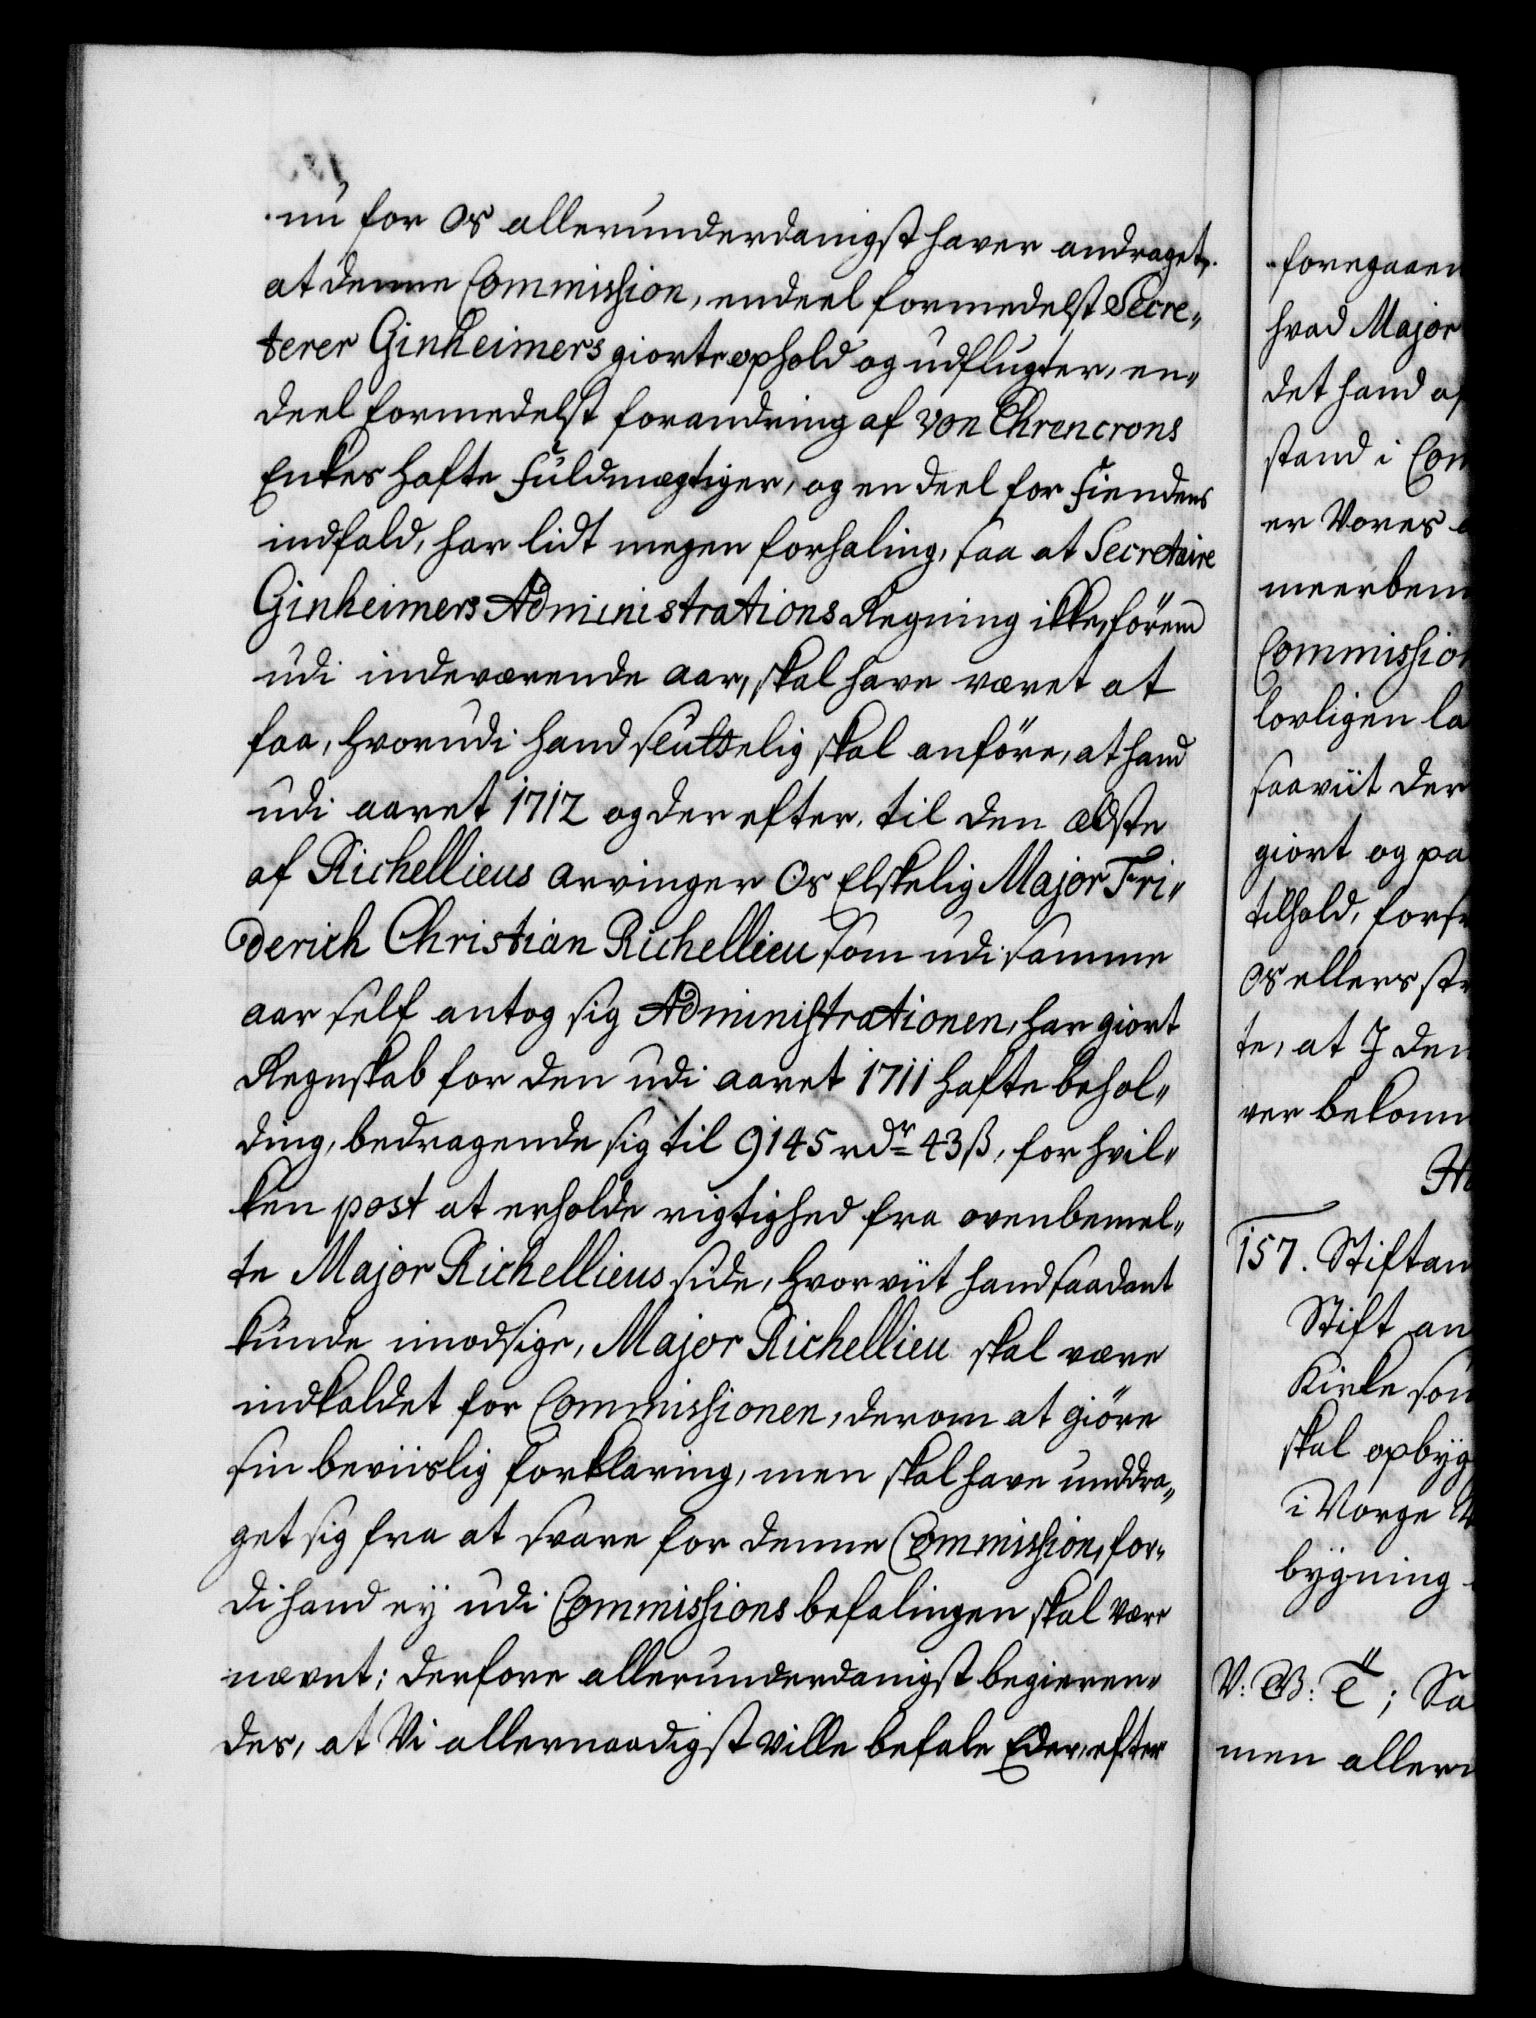 nu for Os allerunderdanigst haver andraget,
at denne Commission, endeel formedelst Secre„
terer Ginheimers giorte ophold og udflugter, en„
deel formedelst forandring af von Ehrencrons
Enkes hafte Fuldmægtiger, og en deel for Fiendens
indfald, har lidt megen forhaling, saa at Secretaire
Ginheimers Administrations Regning ikke, förend
udi indeværende aar, skal have været at
faa, hvorudi hand sluttelig skal anföre, at hand
udi aaret 1712 og der efter, til den ældste
af Richellieus arvinger Os Elskelig Major Fri„
derich Christian Richellieu som udi samme
aar self antog sig Administrationen, har giort
Regnskab for den udi aaret 1711 hafte behol„
ding, bedragende sig til 9145 rdr 43 ß, for hvil„
ken post at erholde rigtighed fra ovenbemel„
te Major Richellieus side, hvorviit hand saadant
kunde imodsige, Major Richellieu skal være
indkaldet for Commissionen, derom at giöre
sin beviislig forklaring, men skal have unddra„
get sig fra at svare for denne Commission, for„
di hand ej udi Commissions befalingen skal være
nævnt; derfore allerunderdanigst begieren„
des, at Vi allernaadigst ville befale Eder, efter
foregaaen
hvad Major
det hand af
stand i Com
er Vores
meerbem
Commission
lovligen la
saaviit der
giort og pa
tilhold, fors
Os ellers str
te, at J den
ver bekom
157. Stiftam
Stift an
Kirke som
skal opbyg
i Norge
bygning
V: G: T; Sa
men allern